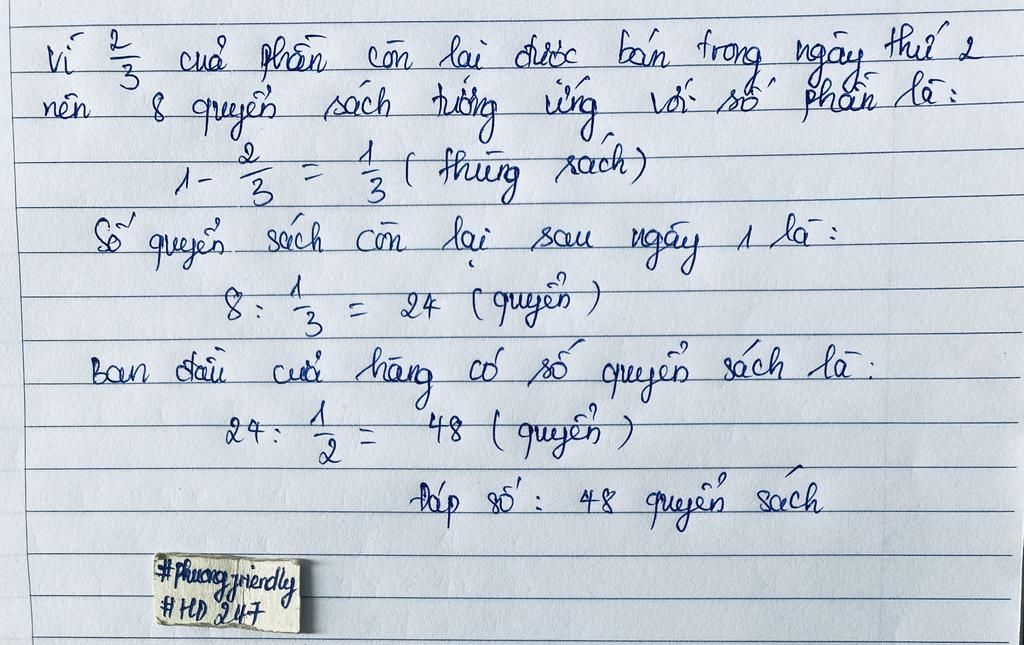 Vì 2/3 của phần còn lại được bán trong ngày thứ 2
nên 8 quyển sách tương ứng với số phần là:
1 - 2/3 = 1/3 ( thùng sách)
Số quyển sách còn lại sau ngày 1 là:
8 : 1/3 = 24 (quyển)
Ban đầu cửa hàng có số quyển sách là:
24 : 1/2 = 48 (quyển)
Đáp số: 48 quyển sách
#Phuongfriendly
#HD 247